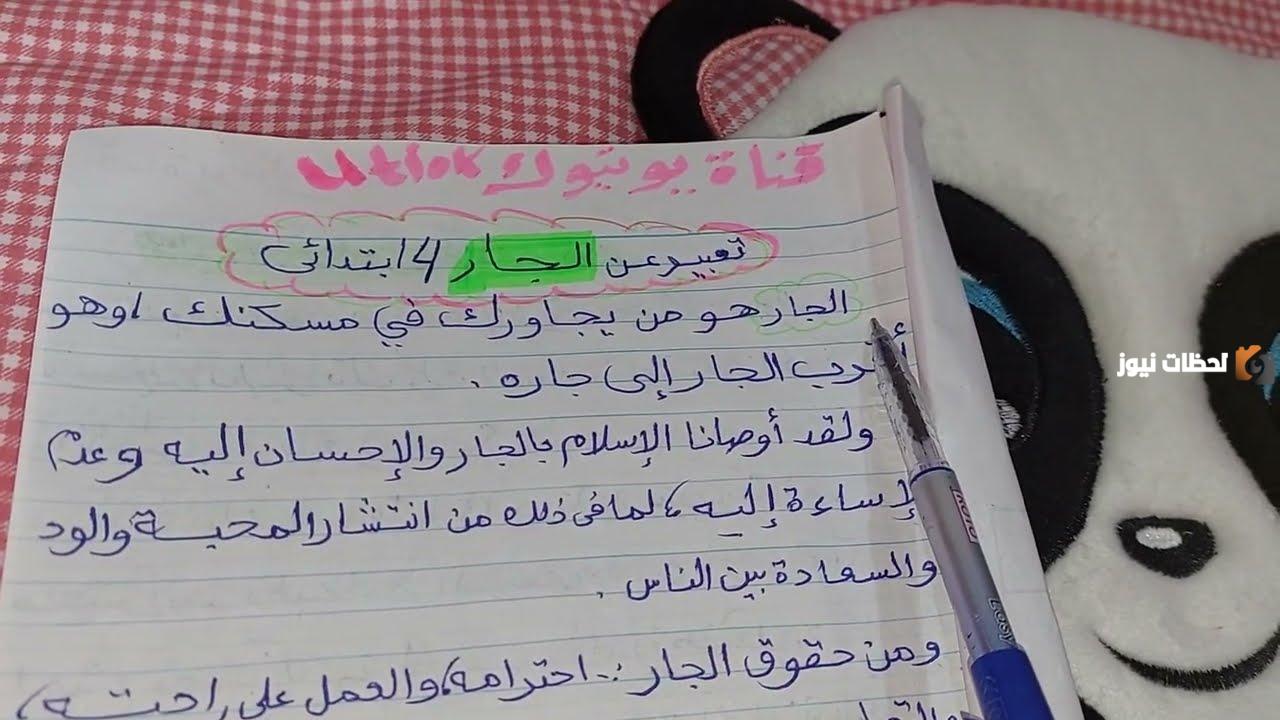 قناة يوتيوك utlok
تعبير عن الجار 4 ابتدائى
الجار هو من يجاورك في مسكنك، وهو
أقرب الجار إلى جاره .
ولقد أوصانا الإسلام بالجار والإحسان إليه وعدم
لإساءة إليه، لما فى ذلك من انتشار المحبة والود
والسعادة بين الناس .
ومن حقوق الجار :- احترامه، والعمل على راحته،
لحظات نيوز